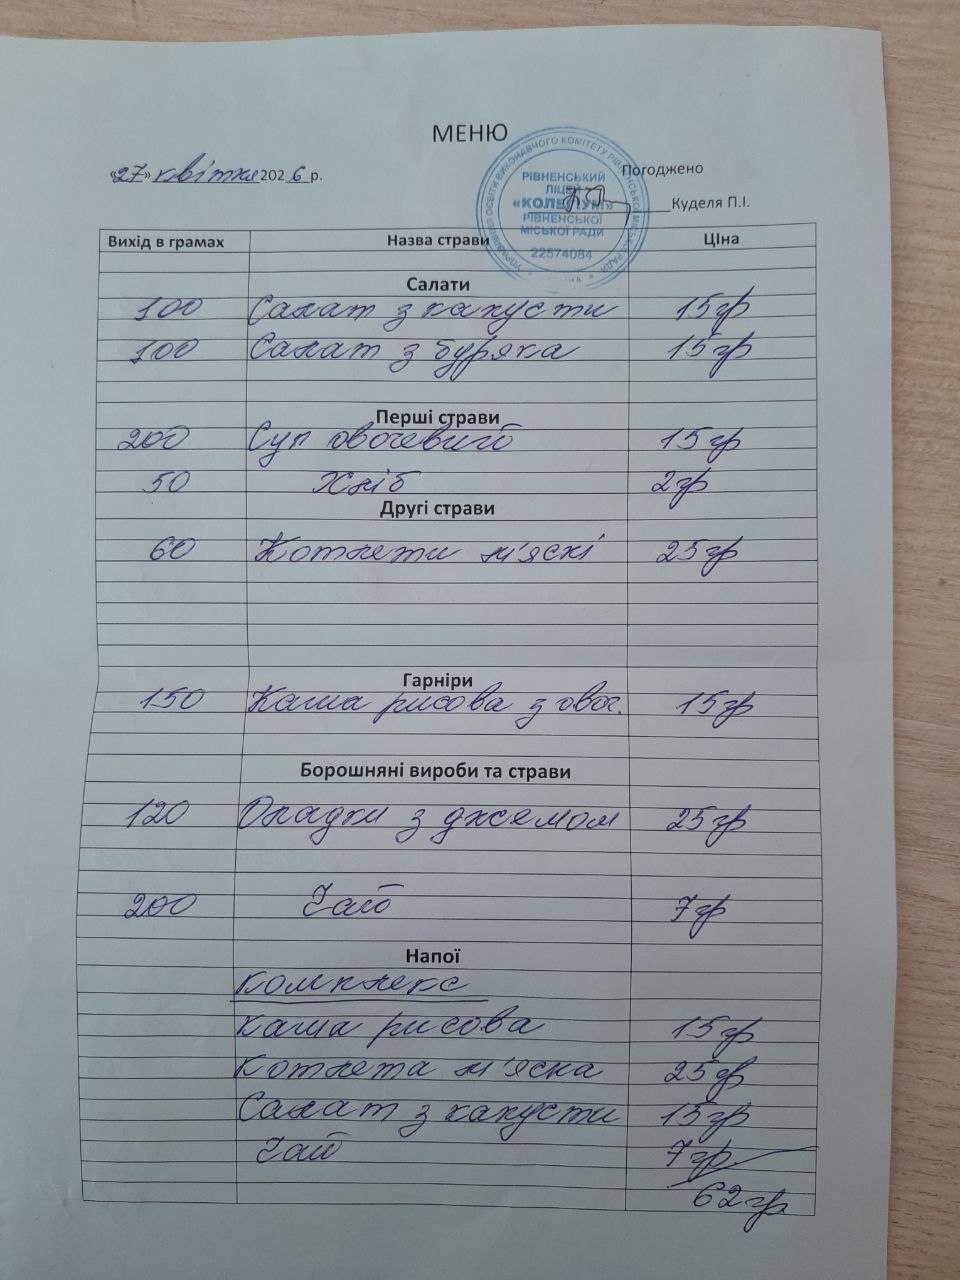 МЕНЮ
«27» квітня 2026 р.
Погоджено
Куделя П.І.
УПРАВЛІННЯ ОСВІТИ ВИКОНАВЧОГО КОМІТЕТУ РІВНЕНСЬКОЇ МІСЬКОЇ РАДИ
РІВНЕНСЬКИЙ
ЛІЦЕЙ
«КОЛЕГІУМ»
РІВНЕНСЬКОЇ
МІСЬКОЇ РАДИ
22574084
Вихід в грамах Назва страви Ціна
Салати
100 Салат з капусти 15гр
100 Салат з буряка 15гр
Перші страви
200 Суп овочевий 15гр
50 Хліб 2гр
Другі страви
60 Котлети м'ясні 25гр
Гарніри
150 Каша рисова з овоч. 15гр
Борошняні вироби та страви
120 Оладки з джемом 25гр
200 Чай 7гр
Напої
Комплекс
Каша рисова 15гр
Котлета м'ясна 25гр
Салат з капусти 15гр
Чай 7гр
62гр